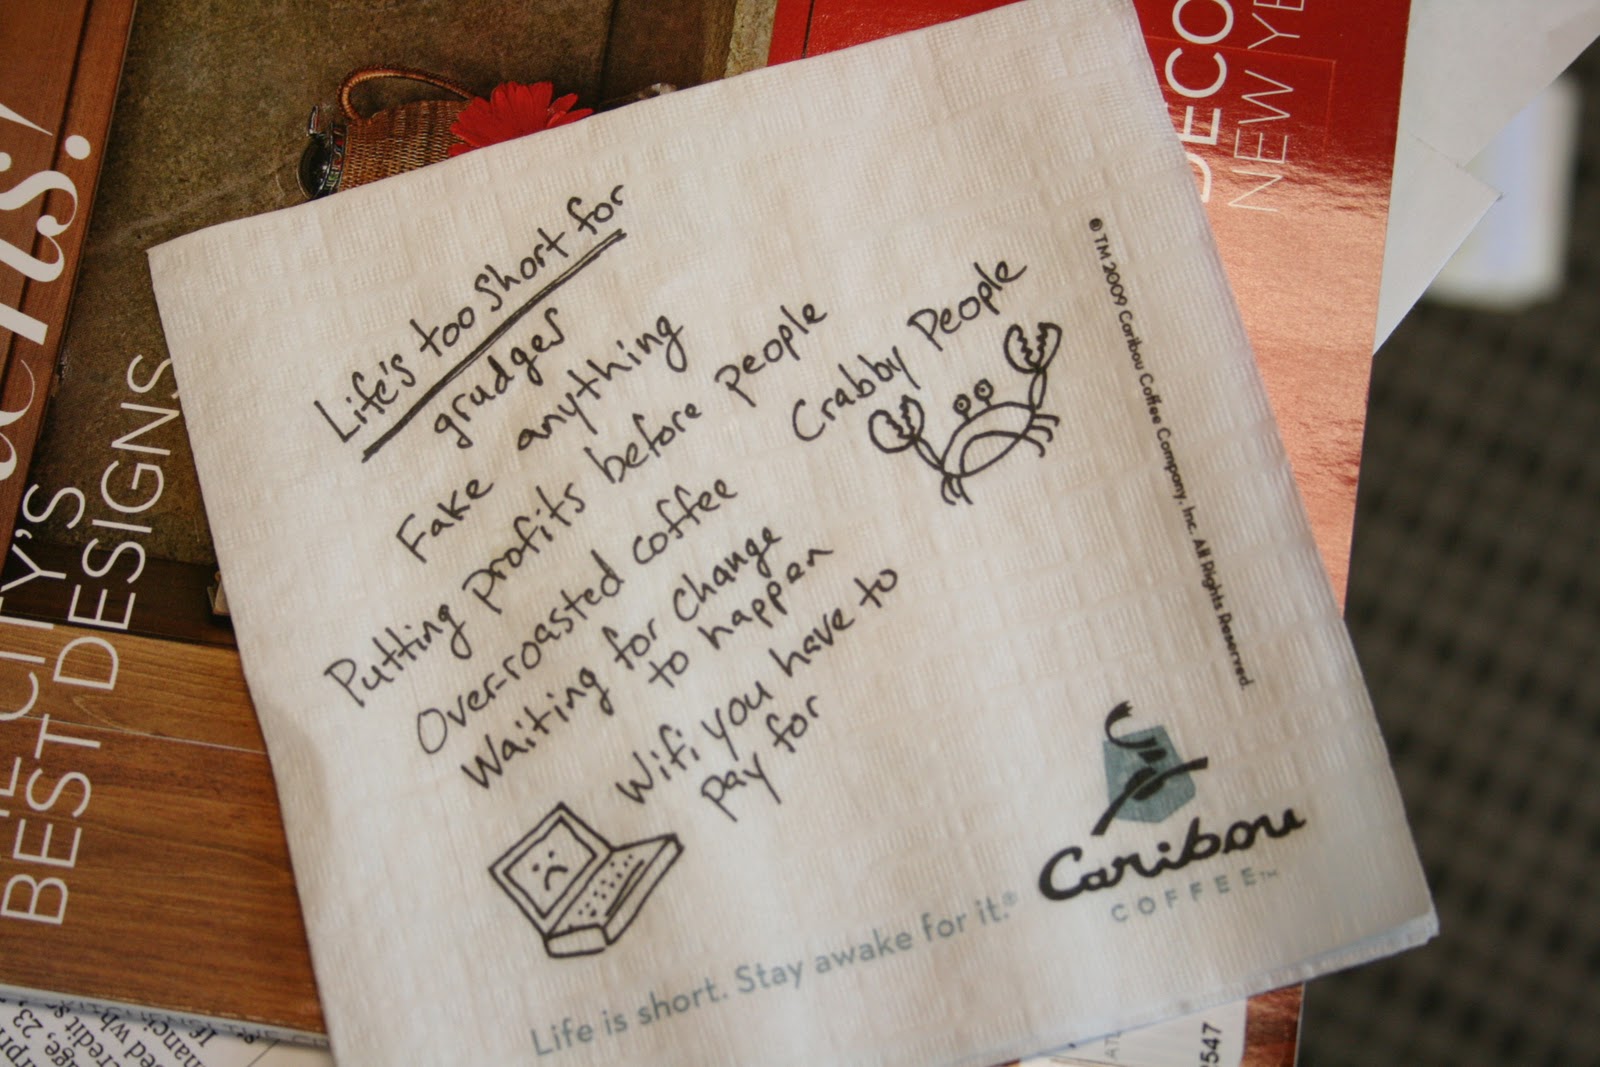 Life's too short for
grudges
Fake anything
Putting profits before people
Over-roasted coffee
Waiting for change
to happen
Wifi you have to
pay for
Crabby People
® TM 2009 Caribou Coffee Company, Inc. All Rights Reserved.
Caribou
COFFEE™
Life is short. Stay awake for it.®
CITY'S
BEST DESIGNS
DECO
NEW YE
2547